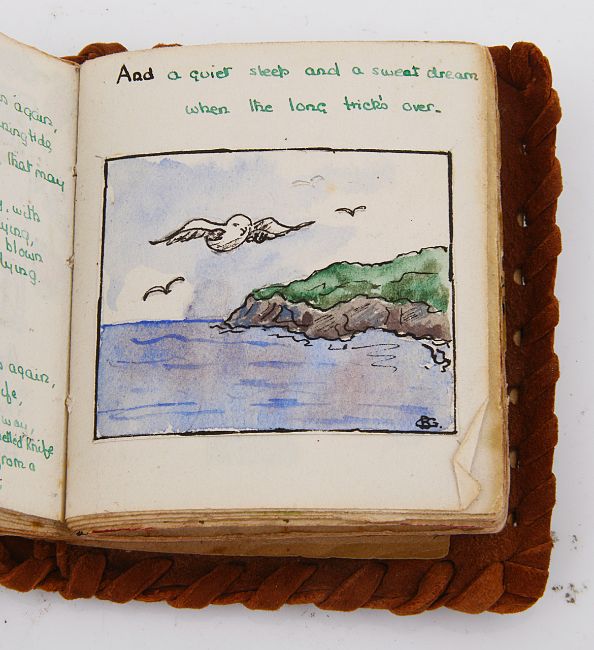 again,
tide
that may
with
blown
again,
way,
Knife
from a
And a quiet sleep and a sweet dream
when the long trick's over.